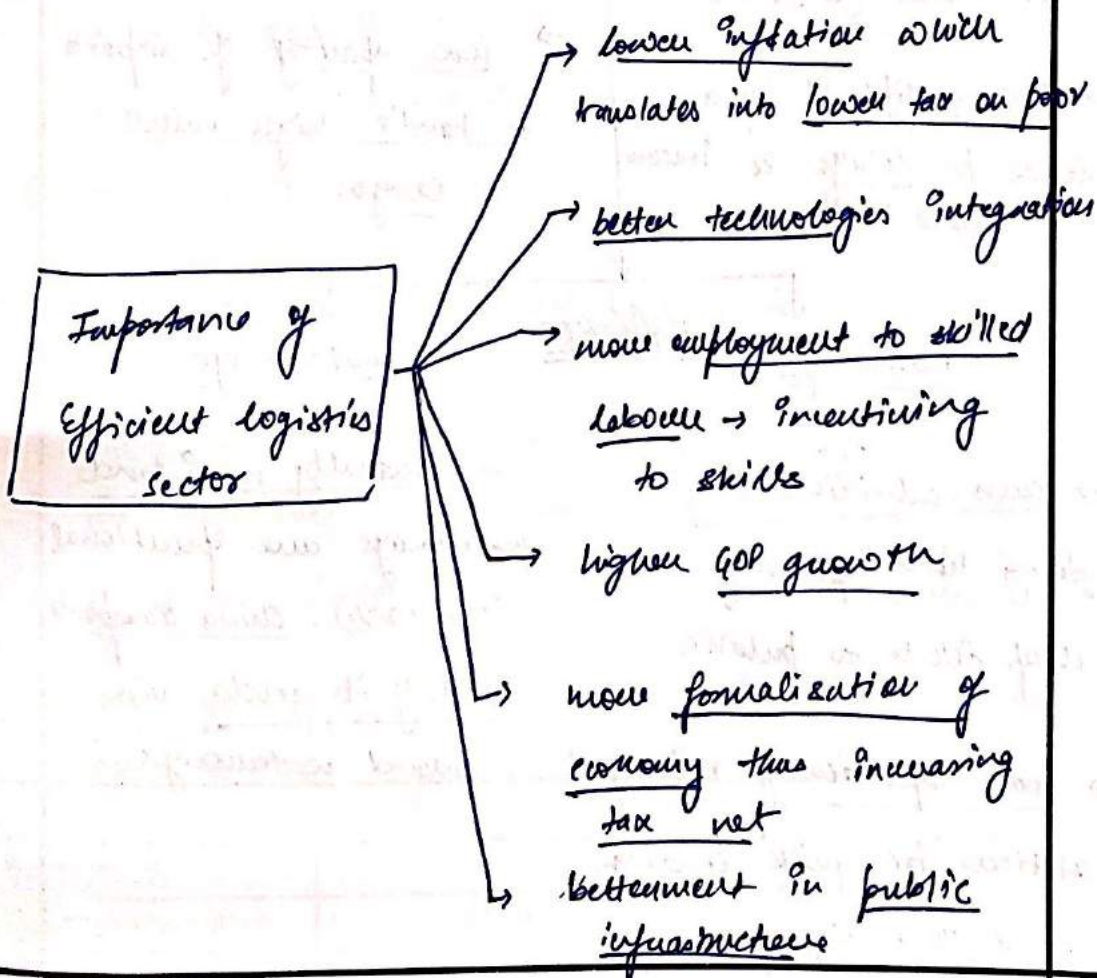 Importance of
Efficient logistics
sector
lower inflation which
translates into lower tax on poor
better technologies integration
more employment to skilled
labour → incentivising
to skills
higher GDP growth
more formalisation of
economy thus increasing
tax net
betterment in public
infrastructure